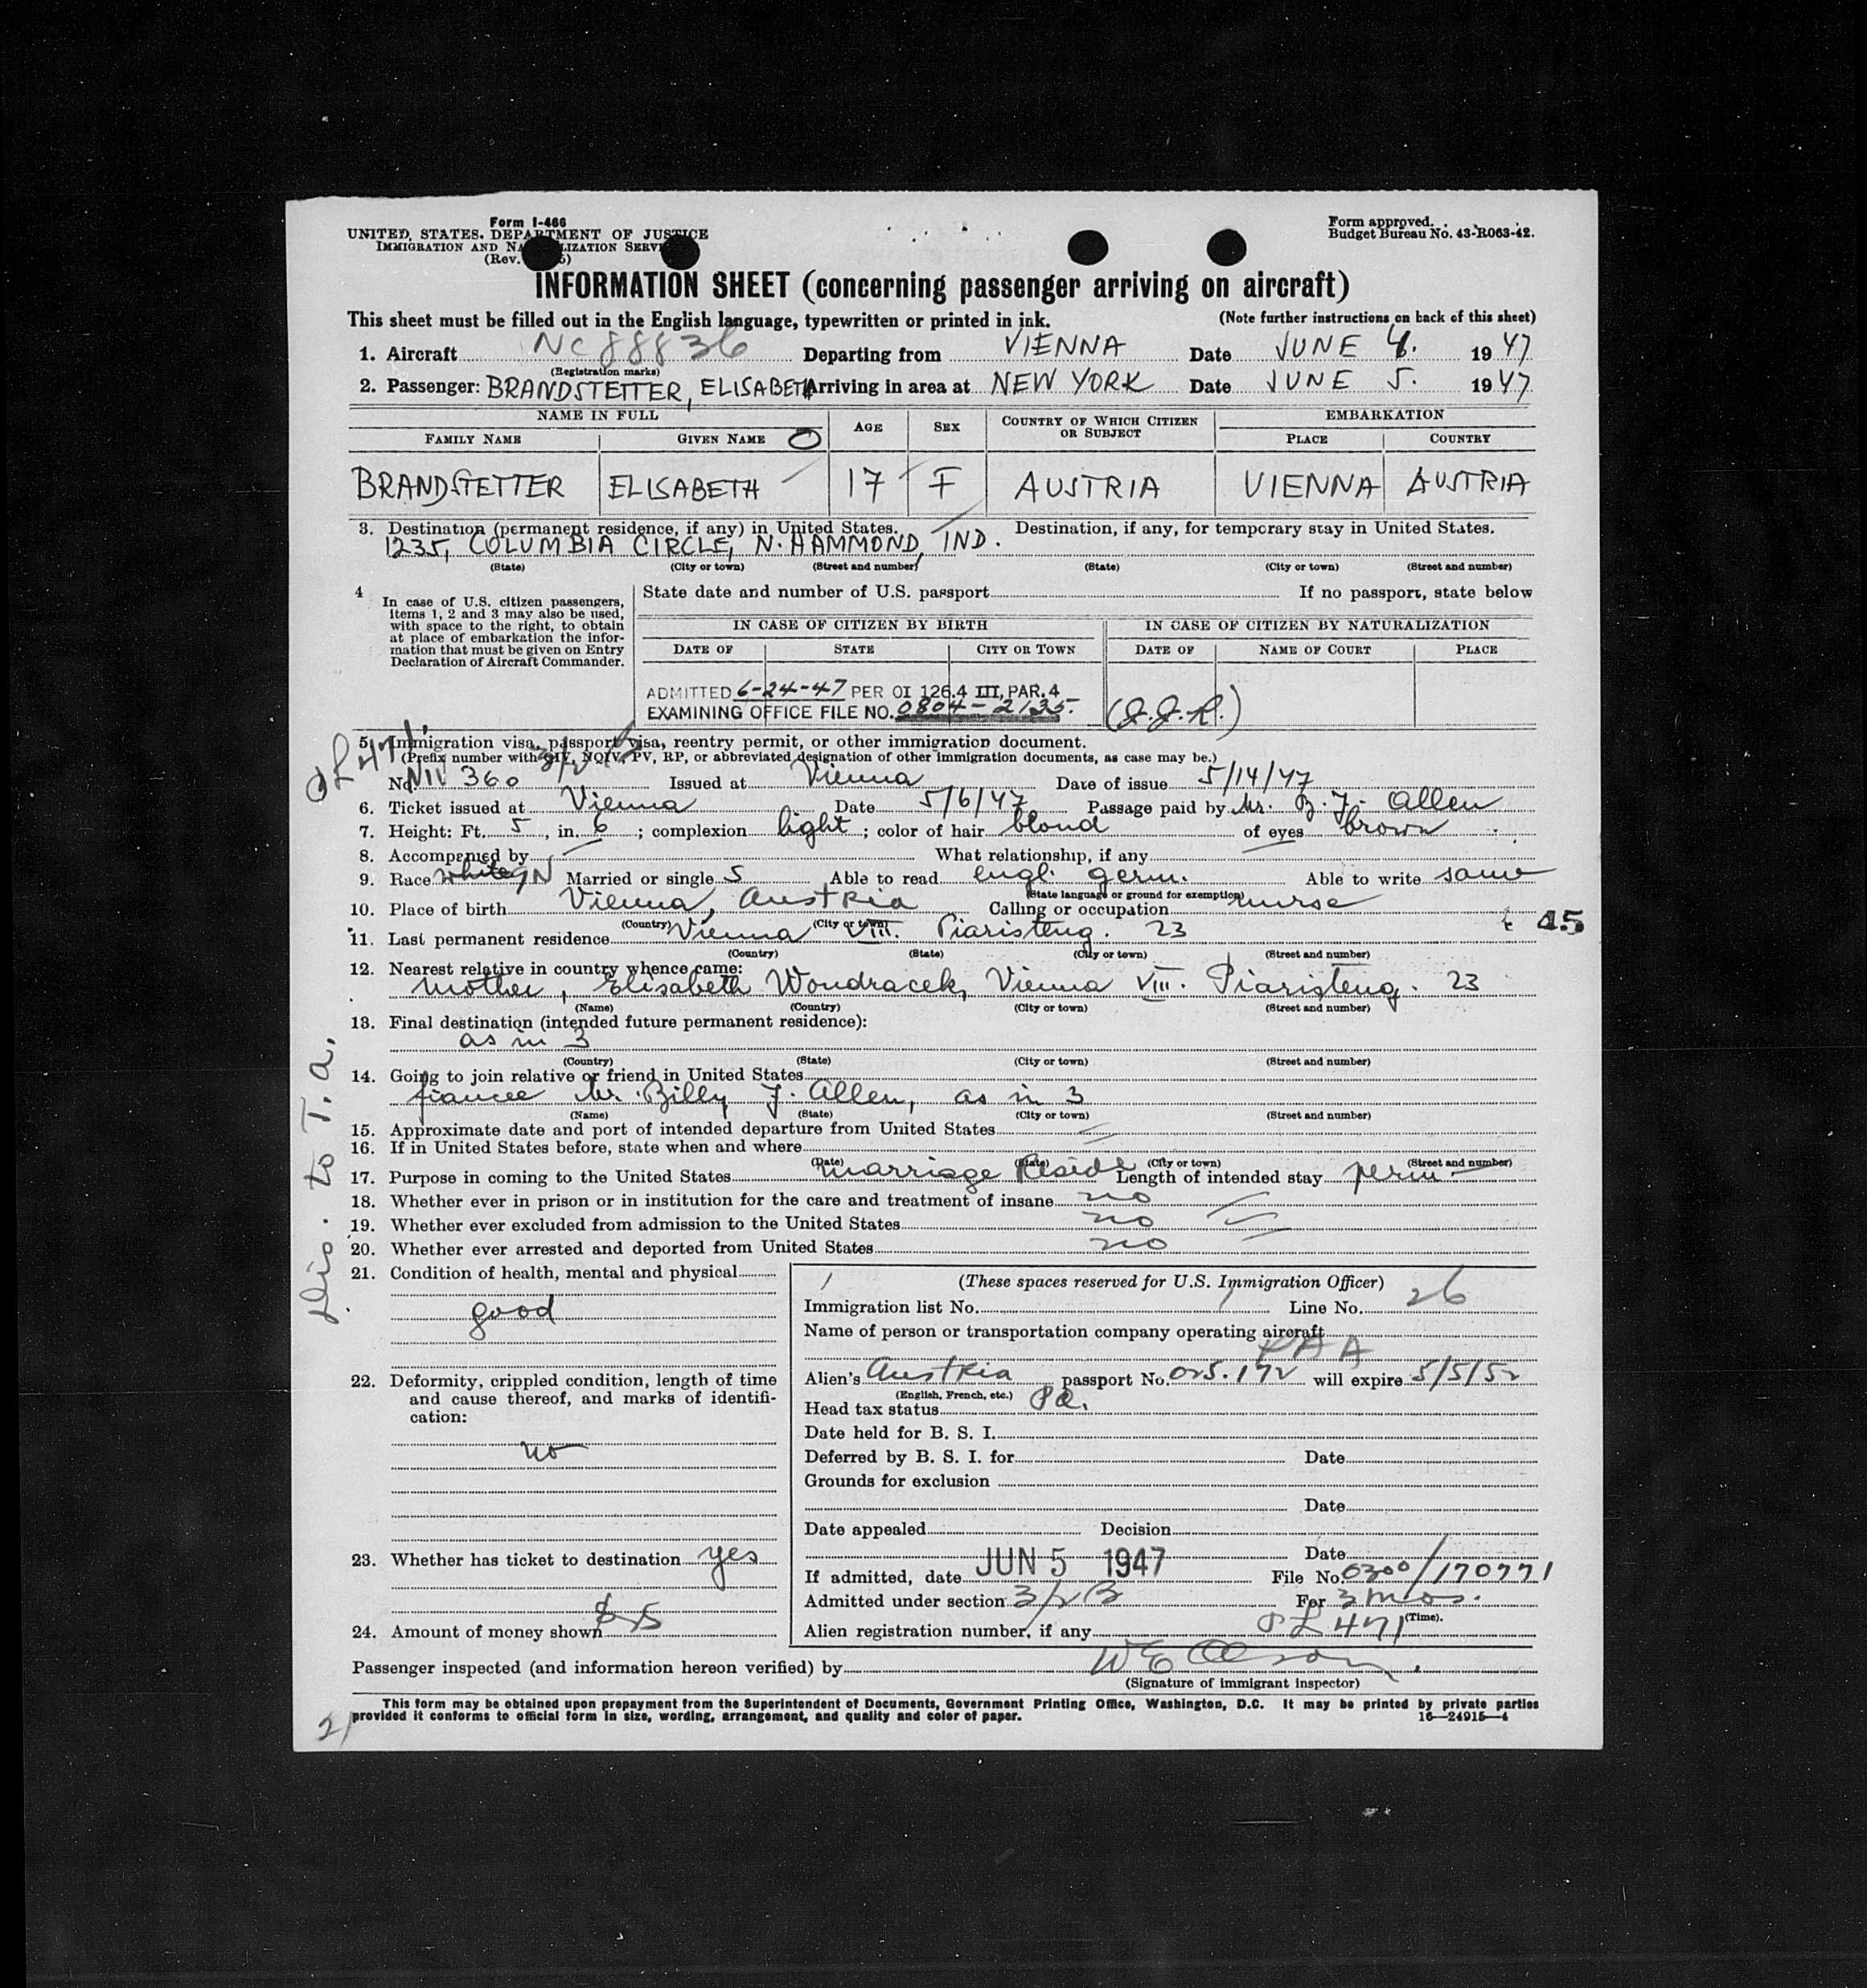 Form I-466
UNITED STATES DEPARTMENT OF JUSTICE
IMMIGRATION AND NA LIZATION SERVI
(Rev. 5)
Form approved.
Budget Bureau No. 43-R063-42.
INFORMATION SHEET (concerning passenger arriving on aircraft)
This sheet must be filled out in the English language, typewritten or printed in ink. (Note further instructions on back of this sheet)
1. Aircraft NC 88836 Departing from VIENNA Date JUNE 4. 1947
(Registration marks)
2. Passenger: BRANDSTETTER, ELISABETH Arriving in area at NEW YORK Date JUNE 5. 1947
NAME IN FULL AGE SEX COUNTRY OF WHICH CITIZEN OR SUBJECT EMBARKATION
FAMILY NAME GIVEN NAME PLACE COUNTRY
BRANDSTETTER ELISABETH 17 F AUSTRIA VIENNA AUSTRIA
3. Destination (permanent residence, if any) in United States. Destination, if any, for temporary stay in United States.
1235, COLUMBIA CIRCLE, N. HAMMOND, IND.
(State) (City or town) (Street and number) (State) (City or town) (Street and number)
4 In case of U.S. citizen passengers, items 1, 2 and 3 may also be used, with space to the right, to obtain at place of embarkation the information that must be given on Entry Declaration of Aircraft Commander.
State date and number of U.S. passport If no passport, state below
IN CASE OF CITIZEN BY BIRTH IN CASE OF CITIZEN BY NATURALIZATION
DATE OF STATE CITY OR TOWN DATE OF NAME OF COURT PLACE
ADMITTED 6-24-47 PER OI 126.4 III, PAR. 4
EXAMINING OFFICE FILE NO. 0804-2135. (J.J.R.)
PL 471
5. Immigration visa, passport visa, reentry permit, or other immigration document.
3/2 B
(Prefix number with QIV, NQIV, PV, RP, or abbreviated designation of other immigration documents, as case may be.)
No. 360 Issued at Vienna Date of issue 5/14/47
6. Ticket issued at Vienna Date 5/6/47 Passage paid by Mr. B. J. Allen
7. Height: Ft. 5, in. 6; complexion light; color of hair blond of eyes brown
8. Accompanied by — What relationship, if any —
9. Race white Married or single S Able to read engl. germ. Able to write same
(State language or ground for exemption)
10. Place of birth Vienna, Austria Calling or occupation nurse
(Country) (City or town)
11. Last permanent residence Vienna VIII. Piaristeng. 23
15
(Country) (State) (City or town) (Street and number)
12. Nearest relative in country whence came:
mother, Elisabeth Wondracek, Vienna VIII. Piaristeng. 23
(Name) (Country) (City or town) (Street and number)
13. Final destination (intended future permanent residence):
as in 3
(Country) (State) (City or town) (Street and number)
14. Going to join relative or friend in United States
fiancee Mr. Billy J. Allen, as in 3
(Name) (State) (City or town) (Street and number)
15. Approximate date and port of intended departure from United States —
16. If in United States before, state when and where
(Date) (State) (City or town) (Street and number)
17. Purpose in coming to the United States marriage Reside Length of intended stay perm.
18. Whether ever in prison or in institution for the care and treatment of insane no
19. Whether ever excluded from admission to the United States no
20. Whether ever arrested and deported from United States no
to T.A.
21. Condition of health, mental and physical
good
22. Deformity, crippled condition, length of time and cause thereof, and marks of identification:
no
23. Whether has ticket to destination yes
24. Amount of money shown $5
(These spaces reserved for U.S. Immigration Officer)
Immigration list No. 1 Line No. 26
Name of person or transportation company operating aircraft
PAA
Alien's Austria passport No. 025.172 will expire 5/5/52
(English, French, etc.)
Head tax status Pd.
Date held for B. S. I.
Deferred by B. S. I. for Date
Grounds for exclusion
Date
Date appealed Decision
Date
If admitted, date JUN 5 1947 File No. 0300/170771
Admitted under section 3/2 B For 3 mos.
(Time).
Alien registration number, if any PL 471
Passenger inspected (and information hereon verified) by W E Olson
(Signature of immigrant inspector)
This form may be obtained upon prepayment from the Superintendent of Documents, Government Printing Office, Washington, D.C. It may be printed by private parties
provided it conforms to official form in size, wording, arrangement, and quality and color of paper. 16—24915-4
21